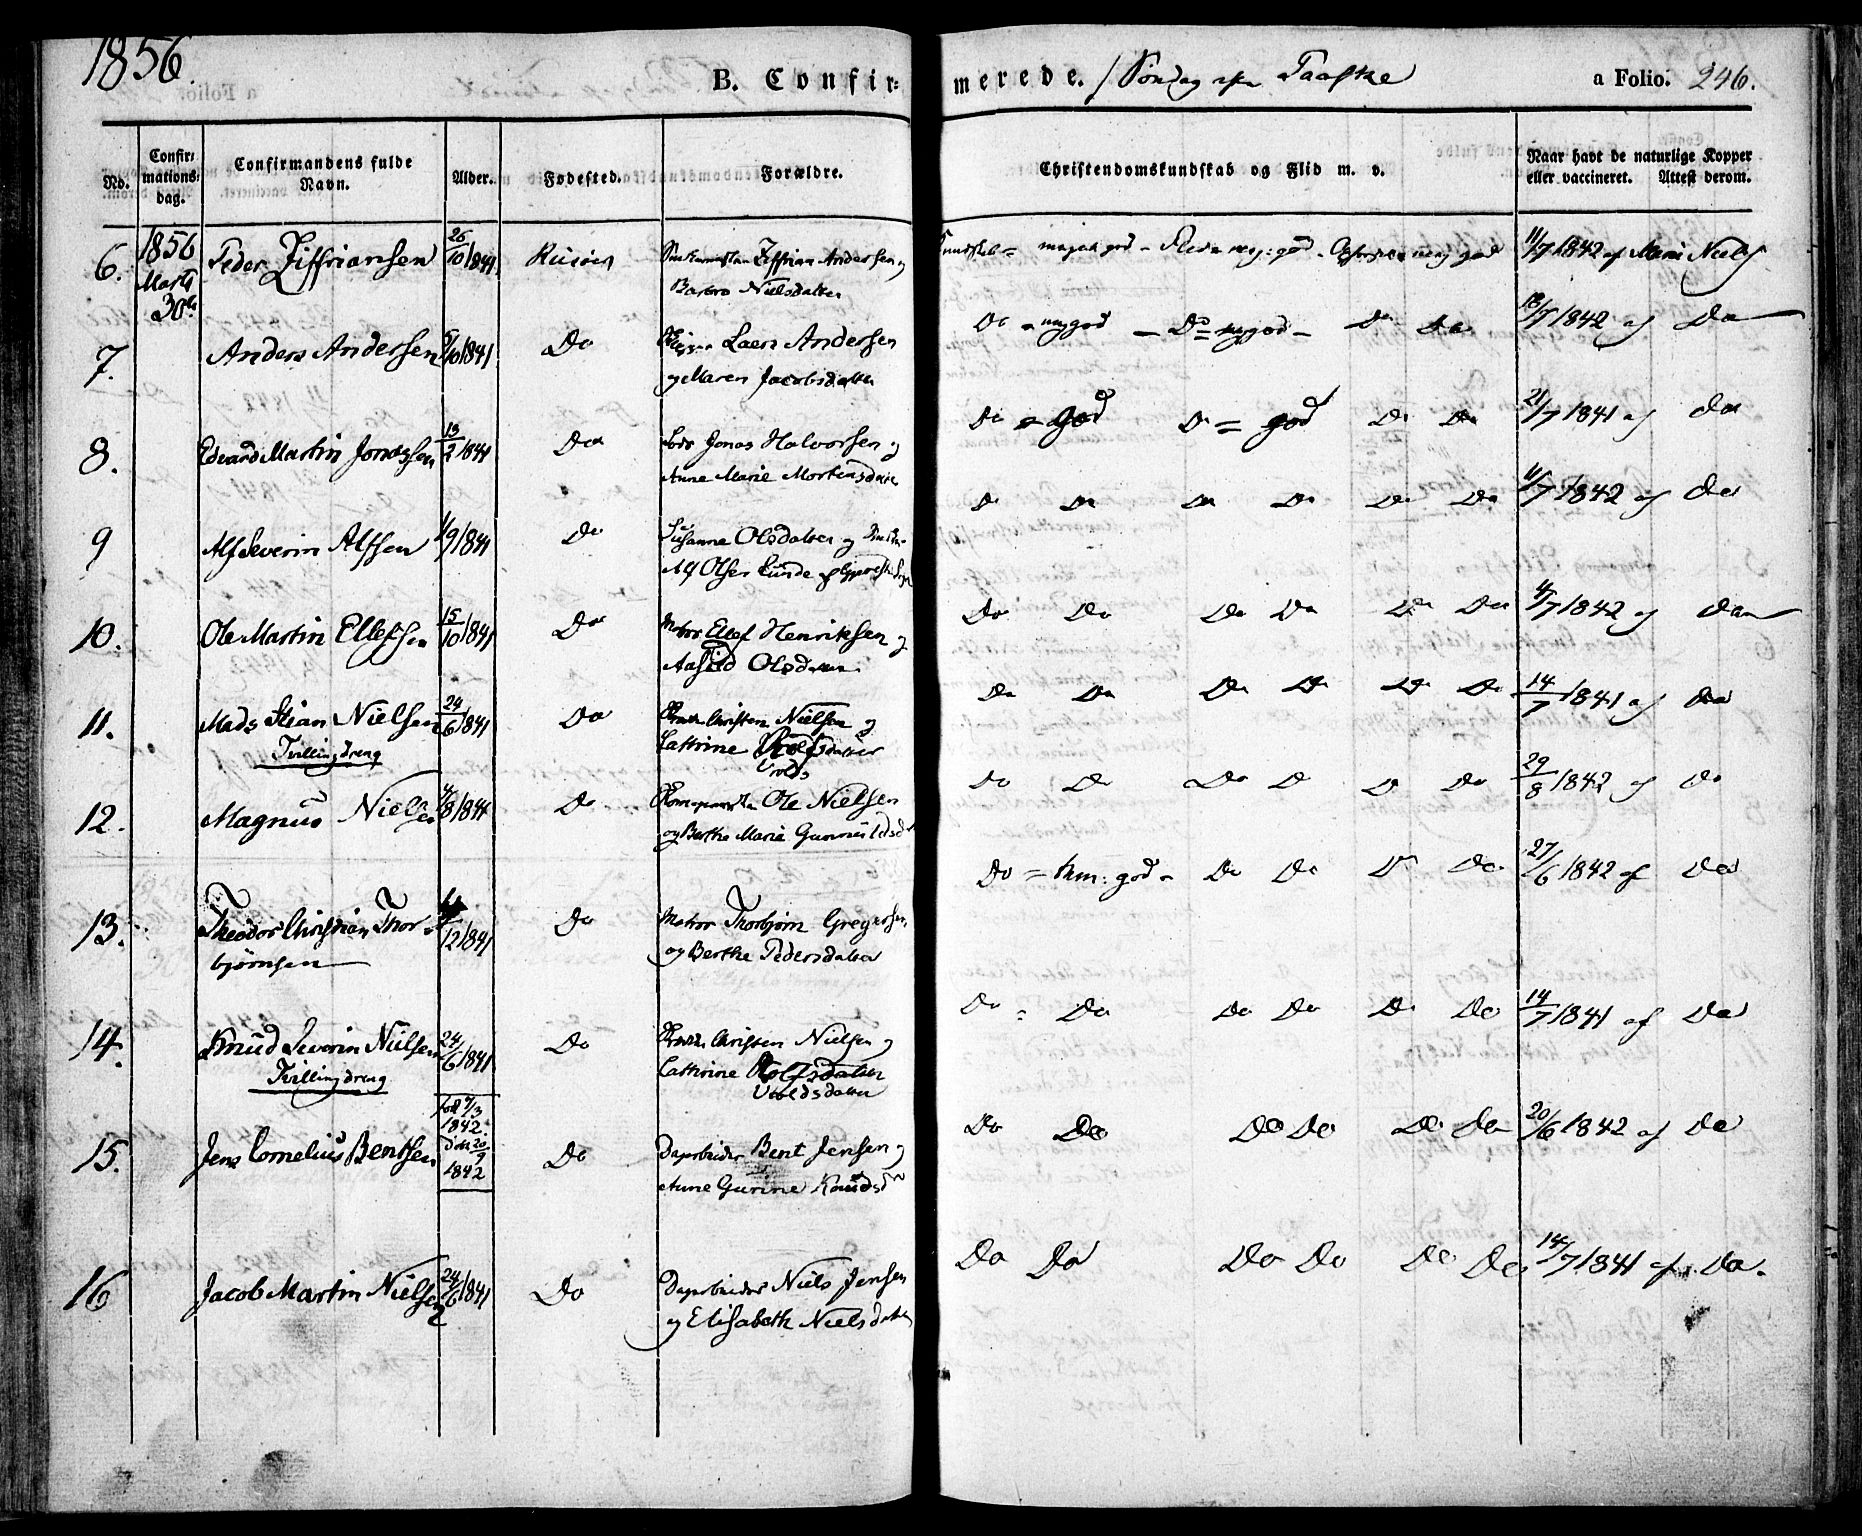 1856.
B. Confirmerede. / Søndag efter Paaske
a Folio. 246.
No.
Confirmationsdag.
Confirmandens fulde Navn.
Alder.
Fødested.
Forældre.
Christendomskundskab og Flid m. v.
Naar havt de naturlige Kopper eller vaccineret. Attest derom.
6. 1856 Marts 30te Peder Ziffriansen 26/10 1841 Risøer Ziffrian Andersen og
Barbro Nielsdatter
Kundskab = meget god - Flid = meg: god - meg god 11/7 1842 af Marie Niels
7. Anders Andersen 1841 Do Laers Andersen
og Maren Jacobsdatter
Do = meg god - Do = meg god - Do Do 1842 af Do
8. Edvard Martin Jonassen 13/2 1841 Do Jonas Halvorsen og
Anne Marie Mortensdatter
Do = god Do = god Do Do 21/7 1841 af Do
9 Alf Severin Alfsen 1/9 1841 Do Susanne Olsdatter og
Alf Olsen Lunde af
Do Do Do Do Do Do 11/7 1842 af Do
10. Ole Martin Ellefsen 15/10 1841 Do Matros Ellef Henriksen og
Olsdatter
Do Do Do Do Do Do 11/7 1842 af Do
11. Mads Stian Nielsen 24/6 1841 Do Christen Nielsen og
Tvillingdreng
Cathrine
Do Do Do Do Do Do 14/7 1841 af Do
12. Magnus Nielsen 1841 Do Ole Nielsen
og Berthe Marie Gunnuldsd
Do Do Do Do Do Do 29/8 1842 af Do
13. Theodor Christian Thorbjørnsen /12 1841 Do Matros Thorbjørn Gregersen
og Berthe Pedersdatter
Do = tem: god - Do Do Do Do 27/6 1842 af Do
14. Knud Severin Nielsen 24/6 1841 Do Christen Nielsen og
Tvillingdreng
Cathrine Rolfsdatter
Uvoldsdatter
Do = Do Do Do Do Do 14/7 1841 af Do
15. Jens Cornelius Bentsen fød 9/3 1842. 1842 Do Dagarbeider Bent Jensen og
Anne Gurine Knudsd
Do Do Do Do Do Do 20/6 1842 af Do
16 Jacob Martin Nielsen 24/6 1841 Do Dagarbeider Niels Jensen
og Elisabeth Nielsdatter
Do Do Do Do Do Do 14/7 1841 af Do.